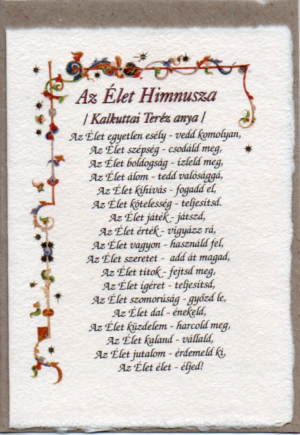 Az Élet Himnusza
/ Kalkuttai Teréz anya /
Az Élet egyetlen esély - vedd komolyan,
Az Élet szépség - csodáld meg,
Az Élet boldogság - ízleld meg,
Az Élet álom - tedd valósággá,
Az Élet kihívás - fogadd el,
Az Élet kötelesség - teljesítsd.
Az Élet játék - játszd,
Az Élet érték - vigyázz rá,
Az Élet vagyon - használd fel,
Az Élet szeretet - add át magad,
Az Élet titok - fejtsd meg,
Az Élet ígéret - teljesítsd,
Az Élet szomorúság - győzd le,
Az Élet dal - énekeld,
Az Élet küzdelem - harcold meg,
Az Élet kaland - vállald,
Az Élet jutalom - érdemeld ki,
Az Élet élet - éljed!